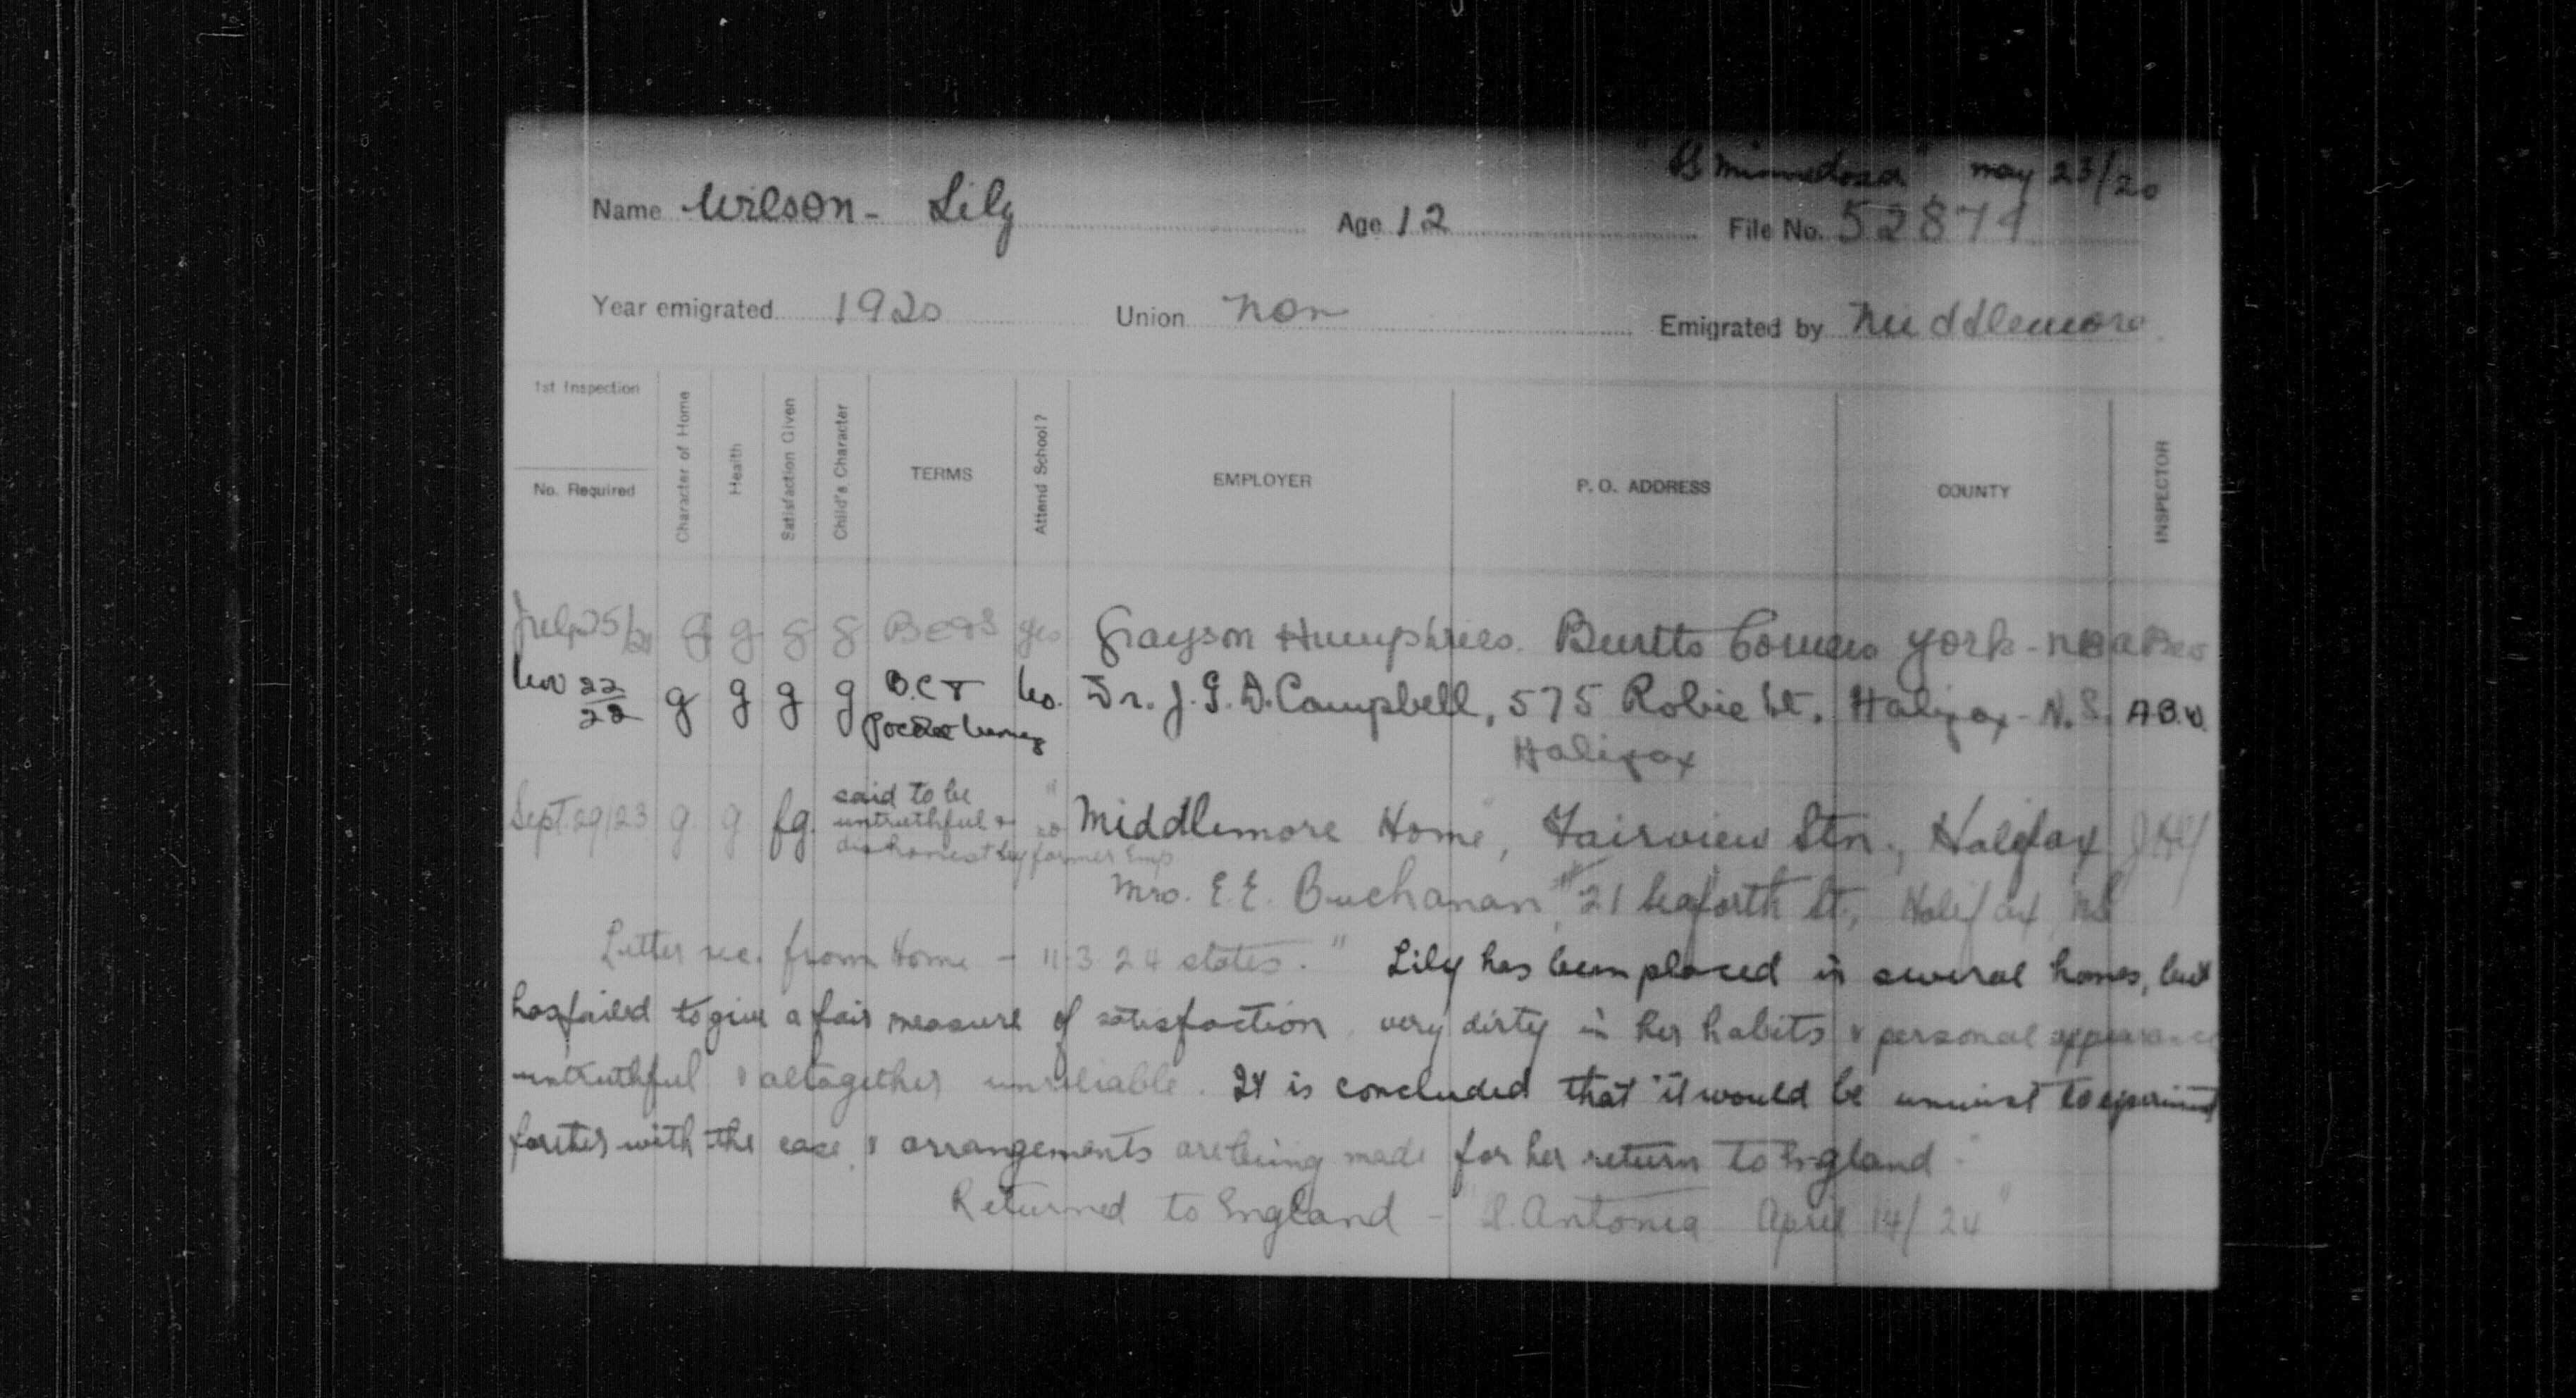 "SS Minnedosa" May 23/20
Name Wilson - Lily Age 12 File No. 52874
Year emigrated 1920 Union non Emigrated by Middlemore
1st Inspection
No. Required
Character of Home
Health
Satisfaction Given
Child's Character
TERMS
Attend School?
EMPLOYER
P. O. ADDRESS
COUNTY
INSPECTOR
July 25/21 g g g g yes Grayson Humphries. Burtts Corners York - NB
Nov 22/22 g g g g B.C & no. Dr. J. G. D. Campbell, 575 Robie St. Halifax - N.S. A.B.W.
Pocket money Halifax
Sept. 29/23 g. g fg. said to be untruthful & dishonest by former Emp. no "Middlemore Home", Fairview Stn., Halifax
Mrs. E. E. Buchanan, #21 Seaforth St., Halifax, NS
Letter rec. from Home - 11.3.24 states. " Lily has been placed in several homes, but
has failed to give a fair measure of satisfaction, very dirty in her habits & personal appearance
untruthful & altogether unreliable. It is concluded that it would be unwise to experiment
further with the case, & arrangements are being made for her return to England "
Returned to England - "S. Antonia April 14/24"